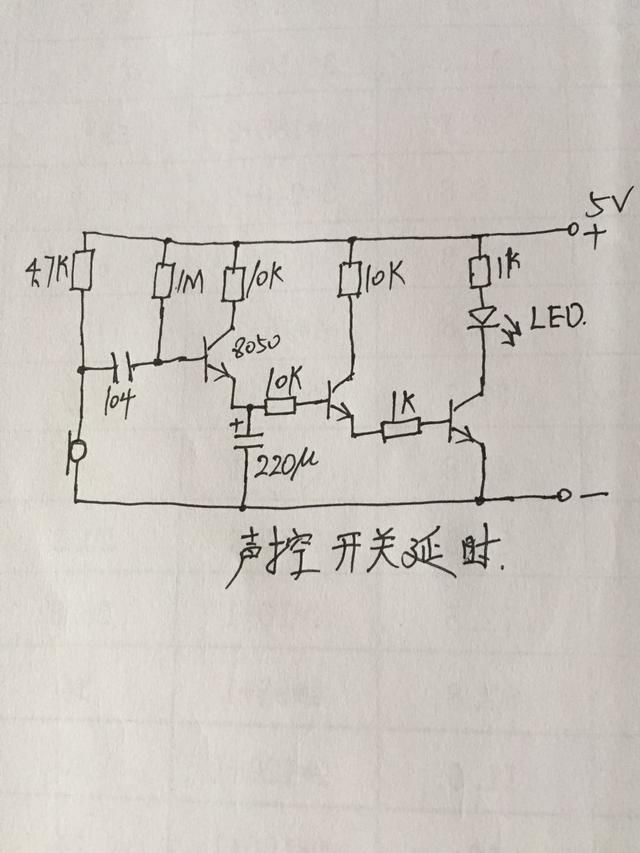 5V
+
4.7K
1M
10K
10K
1K
LED.
8050
104
10K
1K
+
220μ
—
声控开关延时.